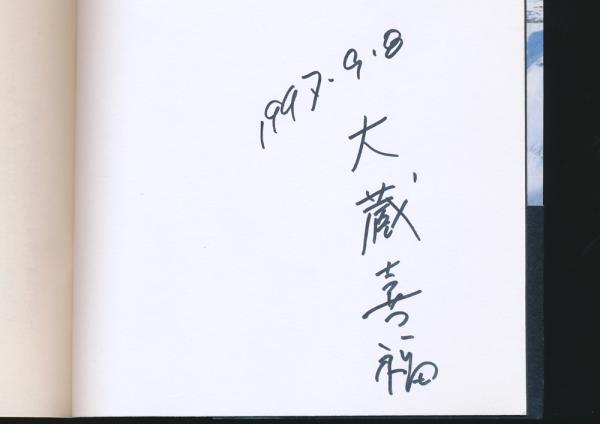 1997.9.8
大蔵喜福